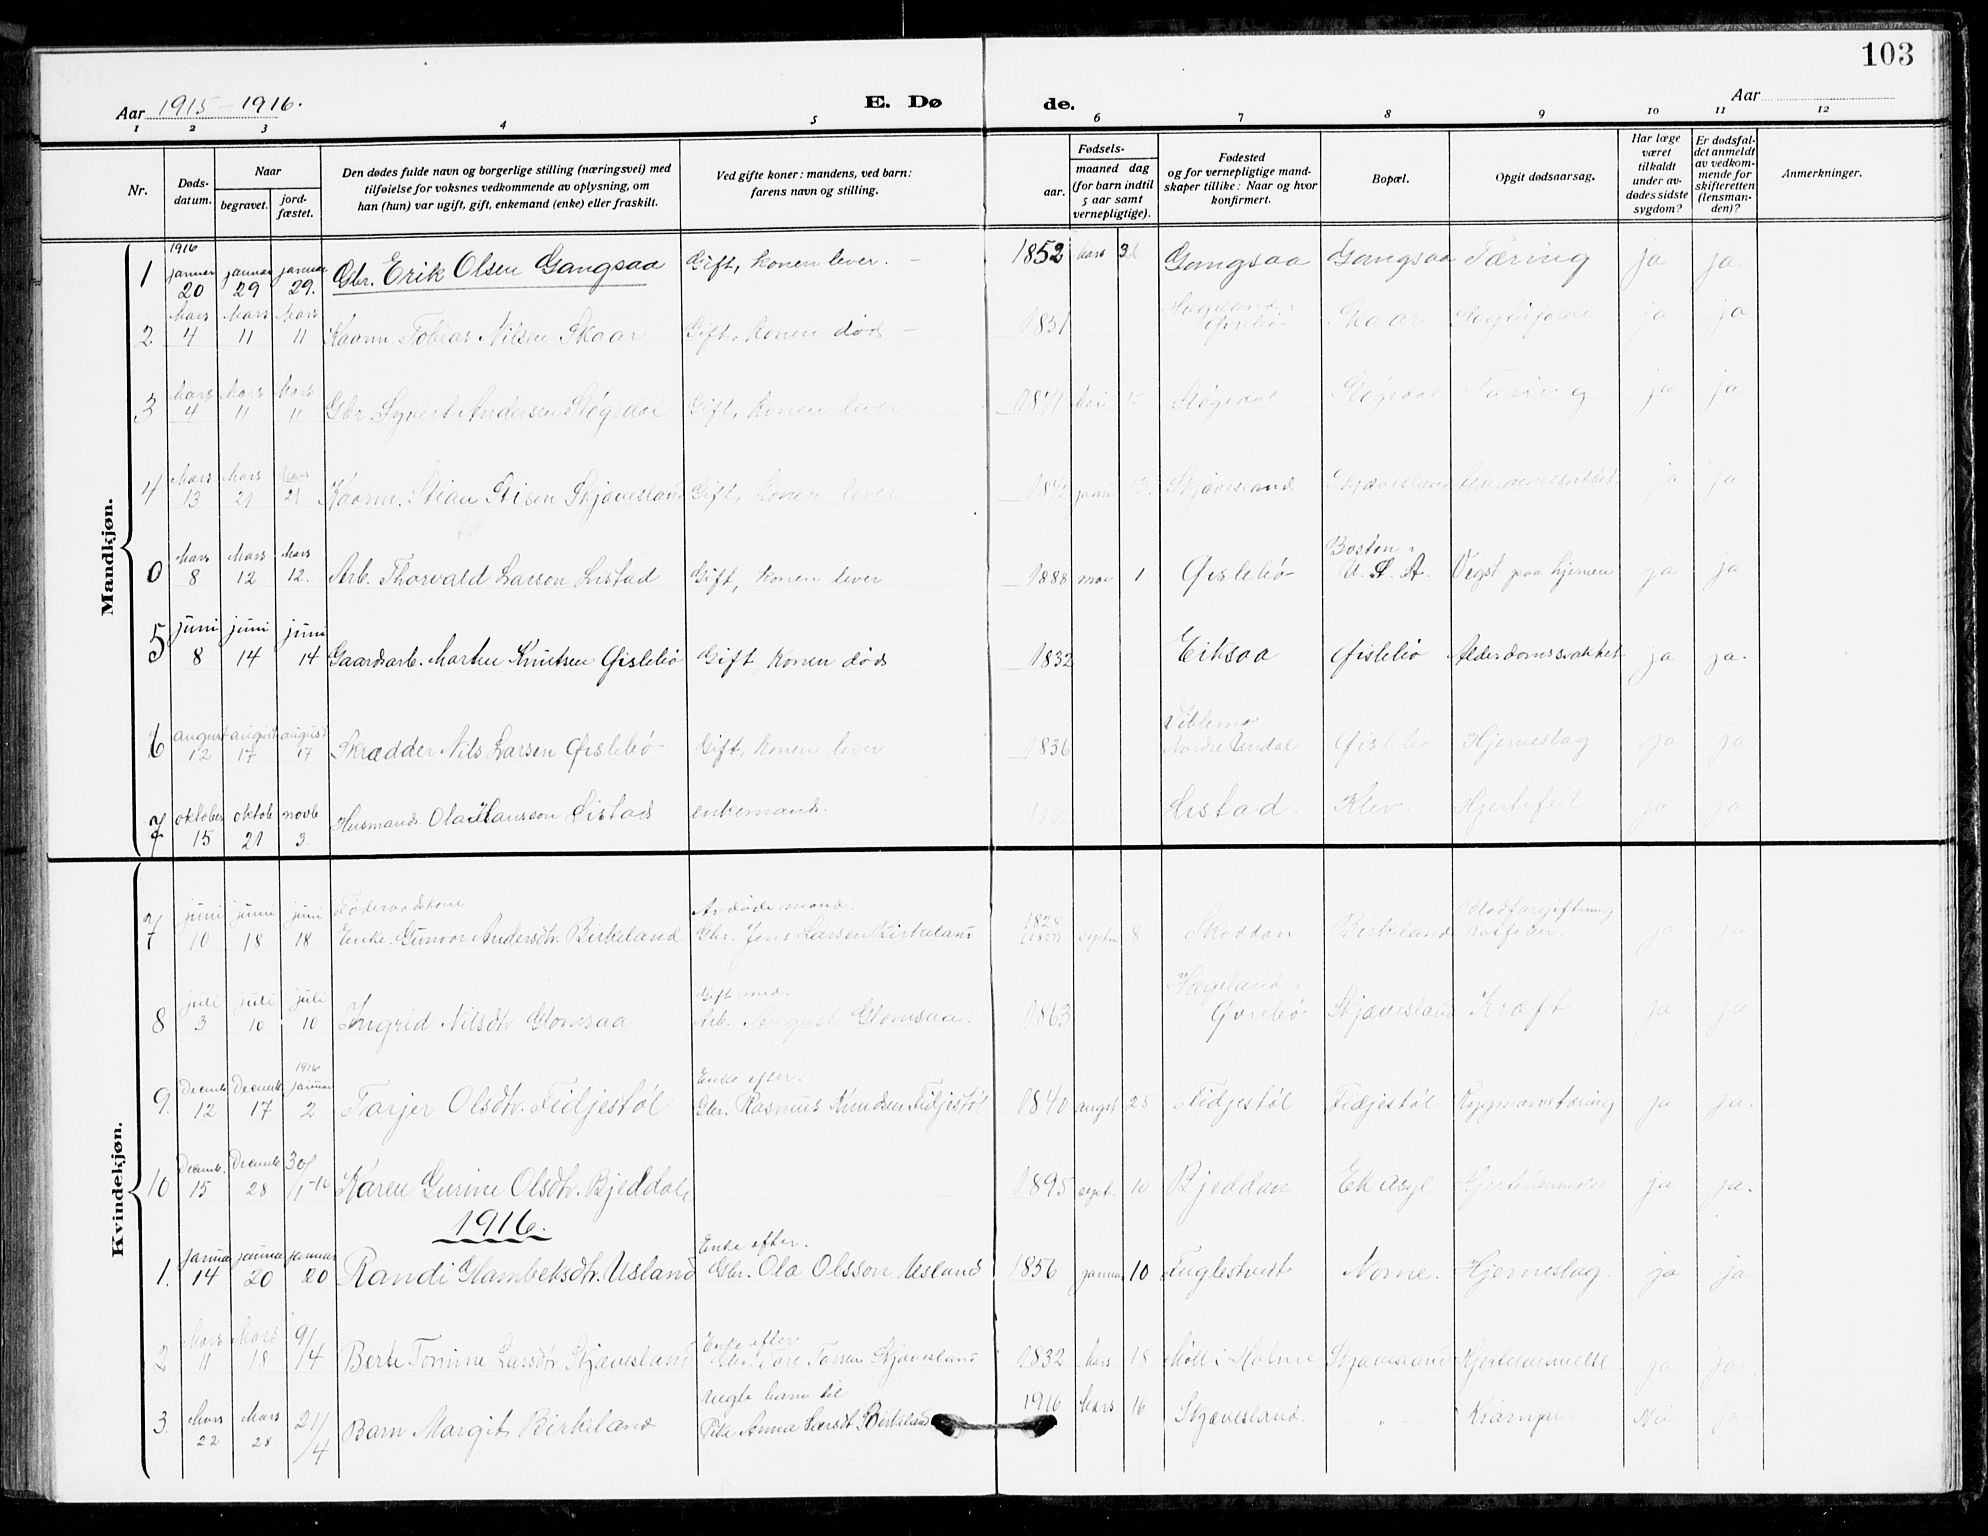 103
Aar 1915-1916.
E. Dø
de.
Aar
1 2 3 4 5 6 7 8 9 10 11 12
Nr.
Døds-
datum.
Naar
begravet.
jord-
fæstet.
Den dødes fulde navn og borgerlige stilling (næringsvei) med
tilføielse for voksnes vedkommende av oplysning, om
han (hun) var ugift, gift, enkemand (enke) eller fraskilt.
Ved gifte koner: mandens, ved barn:
farens navn og stilling.
Fødsels-
aar.
maaned dag
(for barn indtil
5 aar samt
vernepligtige).
Fødested
og for vernepligtige mand-
skaper tillike: Naar og hvor
konfirmert.
Bopæl.
Opgit dødsaarsag.
Har læge
været
tilkaldt
under av-
dødes sidste
sygdom?
Er dødsfal-
det anmeldt
av vedkom-
mende for
skifteretten
(lensman-
den)?
Anmerkninger.
Mandkjøn.
1916
1 januar 20 januar 29 januar 29. Gbr. Erik Olsen Gangsaa Gift, konen lever. - 1852 Mars Gangsaa Gangsaa Tæring ja ja.
2 Mars 4 Mars 11 Mars 11 Kaarm. Tobias Nilsen Skaar Gift, konen død - 1831 Hægeland i Øvrebø Skaar ja ja
3 Mars 4 Mars 11 Mars 11 Gbr Syvert Andersen Støgedal Gift, konen lever 1871 Mai 12 Støgedal Støgedal Tæring ja ja
4 Mars 13 Mars 21 Mars 21 Kaarm. Stian Stisen Skjævesland Gift, konen lever 1842 13. Skjævesland Skjævesland Alderdomssvakhet ja ja
0 Mars 8 Mars 12 Mars 12. Arb. Thorvald Larsen Listad Gift, konen lever 1888 mai 1 Øislebø Boston i U. S. A. Vegst paa hjernen ja ja.
5 juni 8 juni 14 juni 14 Gaardarb. Marten Knutsen Øislebø Gift, konen død 1832 Eiksaa Øislebø Alderdomssvakhet ja ja.
6 august 12 august 17 august 17 Skrædder Nils Larsen Øislebø Gift, konen lever 1836 Viblemo Nordre Undal Øislebø Hjerneslag ja ja
7 oktober 15 oktob 21 novbr 3. Husmand Ola Hansson Listad enkemand. 1832 Listad. Klev. Hjertefeil ja ja
Kvindekjøn.
7 juni 10 juni 18 juni 18 Føderaadskone. Enke. Gunvor Andersdtr. Birkeland Avdøde mand: Gbr. Jens Larsen Birkeland 1828 (1827) septm 8 Skoddan Birkeland Blodforgiftning ja ja
8 juli 3 juli 10 juli 10 Ingrid Nilsdtr. Glomsaa Gift med. Arb. August Glomsaa. 1863 Hægeland i Øvrebø Skjævesland Kræft ja ja
9. Decmb 12 Decmb 17 1916 januar 2 Tarjer Olsdtr. Fidjestøl Enke efter. Gbr. Rasmus Knudsen Fidjestøl 1840 augst 25 Fidjestøl Fidjestøl Rygmarvstæring ja ja.
10 Decmb. 15 Decmb 28 30/1-16 Karen Gurine Olsdtr. Bjeddal 1895 sept. 10 Bjeddan Ek asyl Hjertelammelse ja ja.
1916.
1. januar 14 januar 20 januar 20 Randi Glambeksdtr. Usland Enke efter. Gbr. Ola Olsson Usland 1856 januar 10 Fuglestvedt Nome. Hjerneslag. ja ja
2 Mars 11 Mars 18 9/14 Berte Tomine Larsdtr. Skjævesland Enke efter Gbr. Tore Torsen Skjævesland 1832 Mars 18 Møll i Holme Skjævesland Hjertelammelse ja ja.
3. Mars 22 Mars 28 21/4 Barn Margit Birkeland Uegte barn til Pike Anna Larsdt. Birkeland 1916 Mars 16 Skjævesland. " Krampe Nei ja